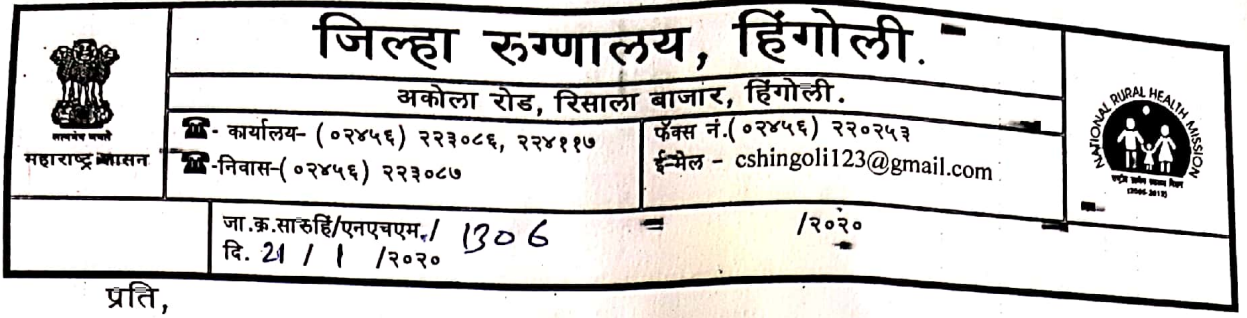 जिल्हा रुग्णालय, हिंगोली.
अकोला रोड, रिसाला बाजार, हिंगोली.
सत्यमेव जयते
महाराष्ट्र शासन
☎- कार्यालय- (०२४५६) २२३०८६, २२४११७
☎-निवास-(०२४५६) २२३०८७
फॅक्स नं.(०२४५६) २२०२५३
ई-मेल - cshingoli123@gmail.com
NATIONAL RURAL HEALTH MISSION
राष्ट्रीय ग्रामीण स्वास्थ्य मिशन
(2005-2012)
जा.क्र.सारुहिं/एनएचएम./ 1306 /२०२०
दि. 21 / 1 /२०२०
प्रति,